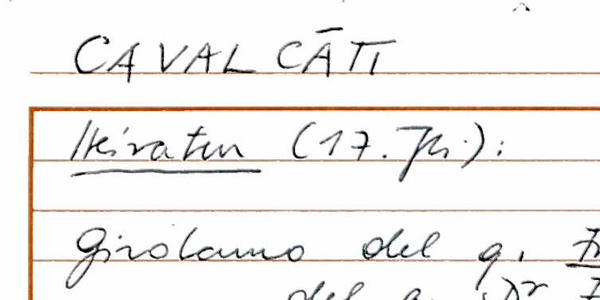 CAVALCĀTI
Heiraten (17. Jh.):
Girolamo del q.
del q.